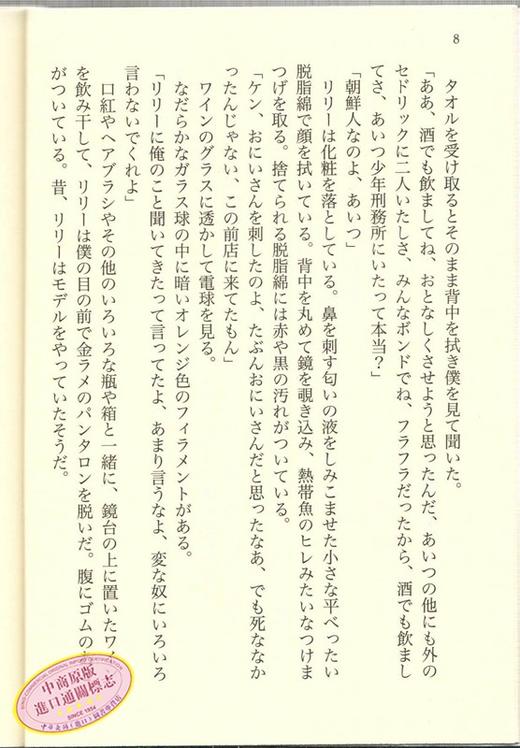 8
タオルを受け取るとそのまま背中を拭き僕を見て聞いた。
「ああ、酒でも飲ましてね、おとなしくさせようと思ったんだ、あいつの他にも外の
セドリックに二人いたしさ、みんなボンドでね、フラフラだったから、酒でも飲まし
てさ、あいつ少年刑務所にいたって本当？」
「朝鮮人なのよ、あいつ」
リリーは化粧を落としている。鼻を刺す匂いの液をしみこませた小さな平べったい
脱脂綿で顔を拭いている。背中を丸めて鏡を覗き込み、熱帯魚のヒレみたいなつけま
つげを取る。捨てられる脱脂綿には赤や黒の汚れがついている。
「ケン、おにいさんを刺したのよ、たぶんおにいさんだと思ったなあ、でも死ななか
ったんじゃない、この前店に来てたもん」
ワインのグラスに透かして電球を見る。
なだらかなガラス球の中に暗いオレンジ色のフィラメントがある。
「リリーに俺のこと聞いてきたって言ってたよ、あまり言うなよ、変な奴にいろいろ
言わないでくれよ」
口紅やヘアブラシやその他のいろいろな瓶や箱と一緒に、鏡台の上に置いたワ
を飲み干して、リリーは僕の目の前で金ラメのパンタロンを脱いだ。腹にゴムの
がついている。昔、リリーはモデルをやっていたそうだ。
中商原版
進口通關標志
SINCE 1954